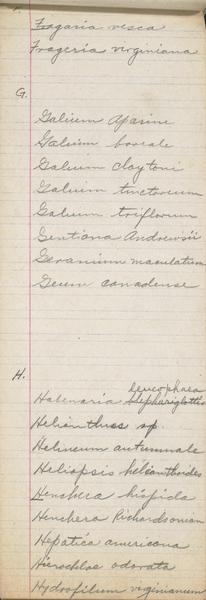 Fragaria vesca
Frageria virginiana
G.
Galium Aparine
Galium boreale
Galium claytoni
Galium tinctorium
Galium triflorum
Gentiana Andrewsii
Geranium maculatum
Geum canadense
H.
leucophaea
Habenaria blephariglottis
Helianthus sp.
Helineum autumnale
Heliopsis helianthoides
Heuchera hispida
Heuchera Richardsonian
Hepatica americana
Hierochloe odorata
Hydrofilum virginianum